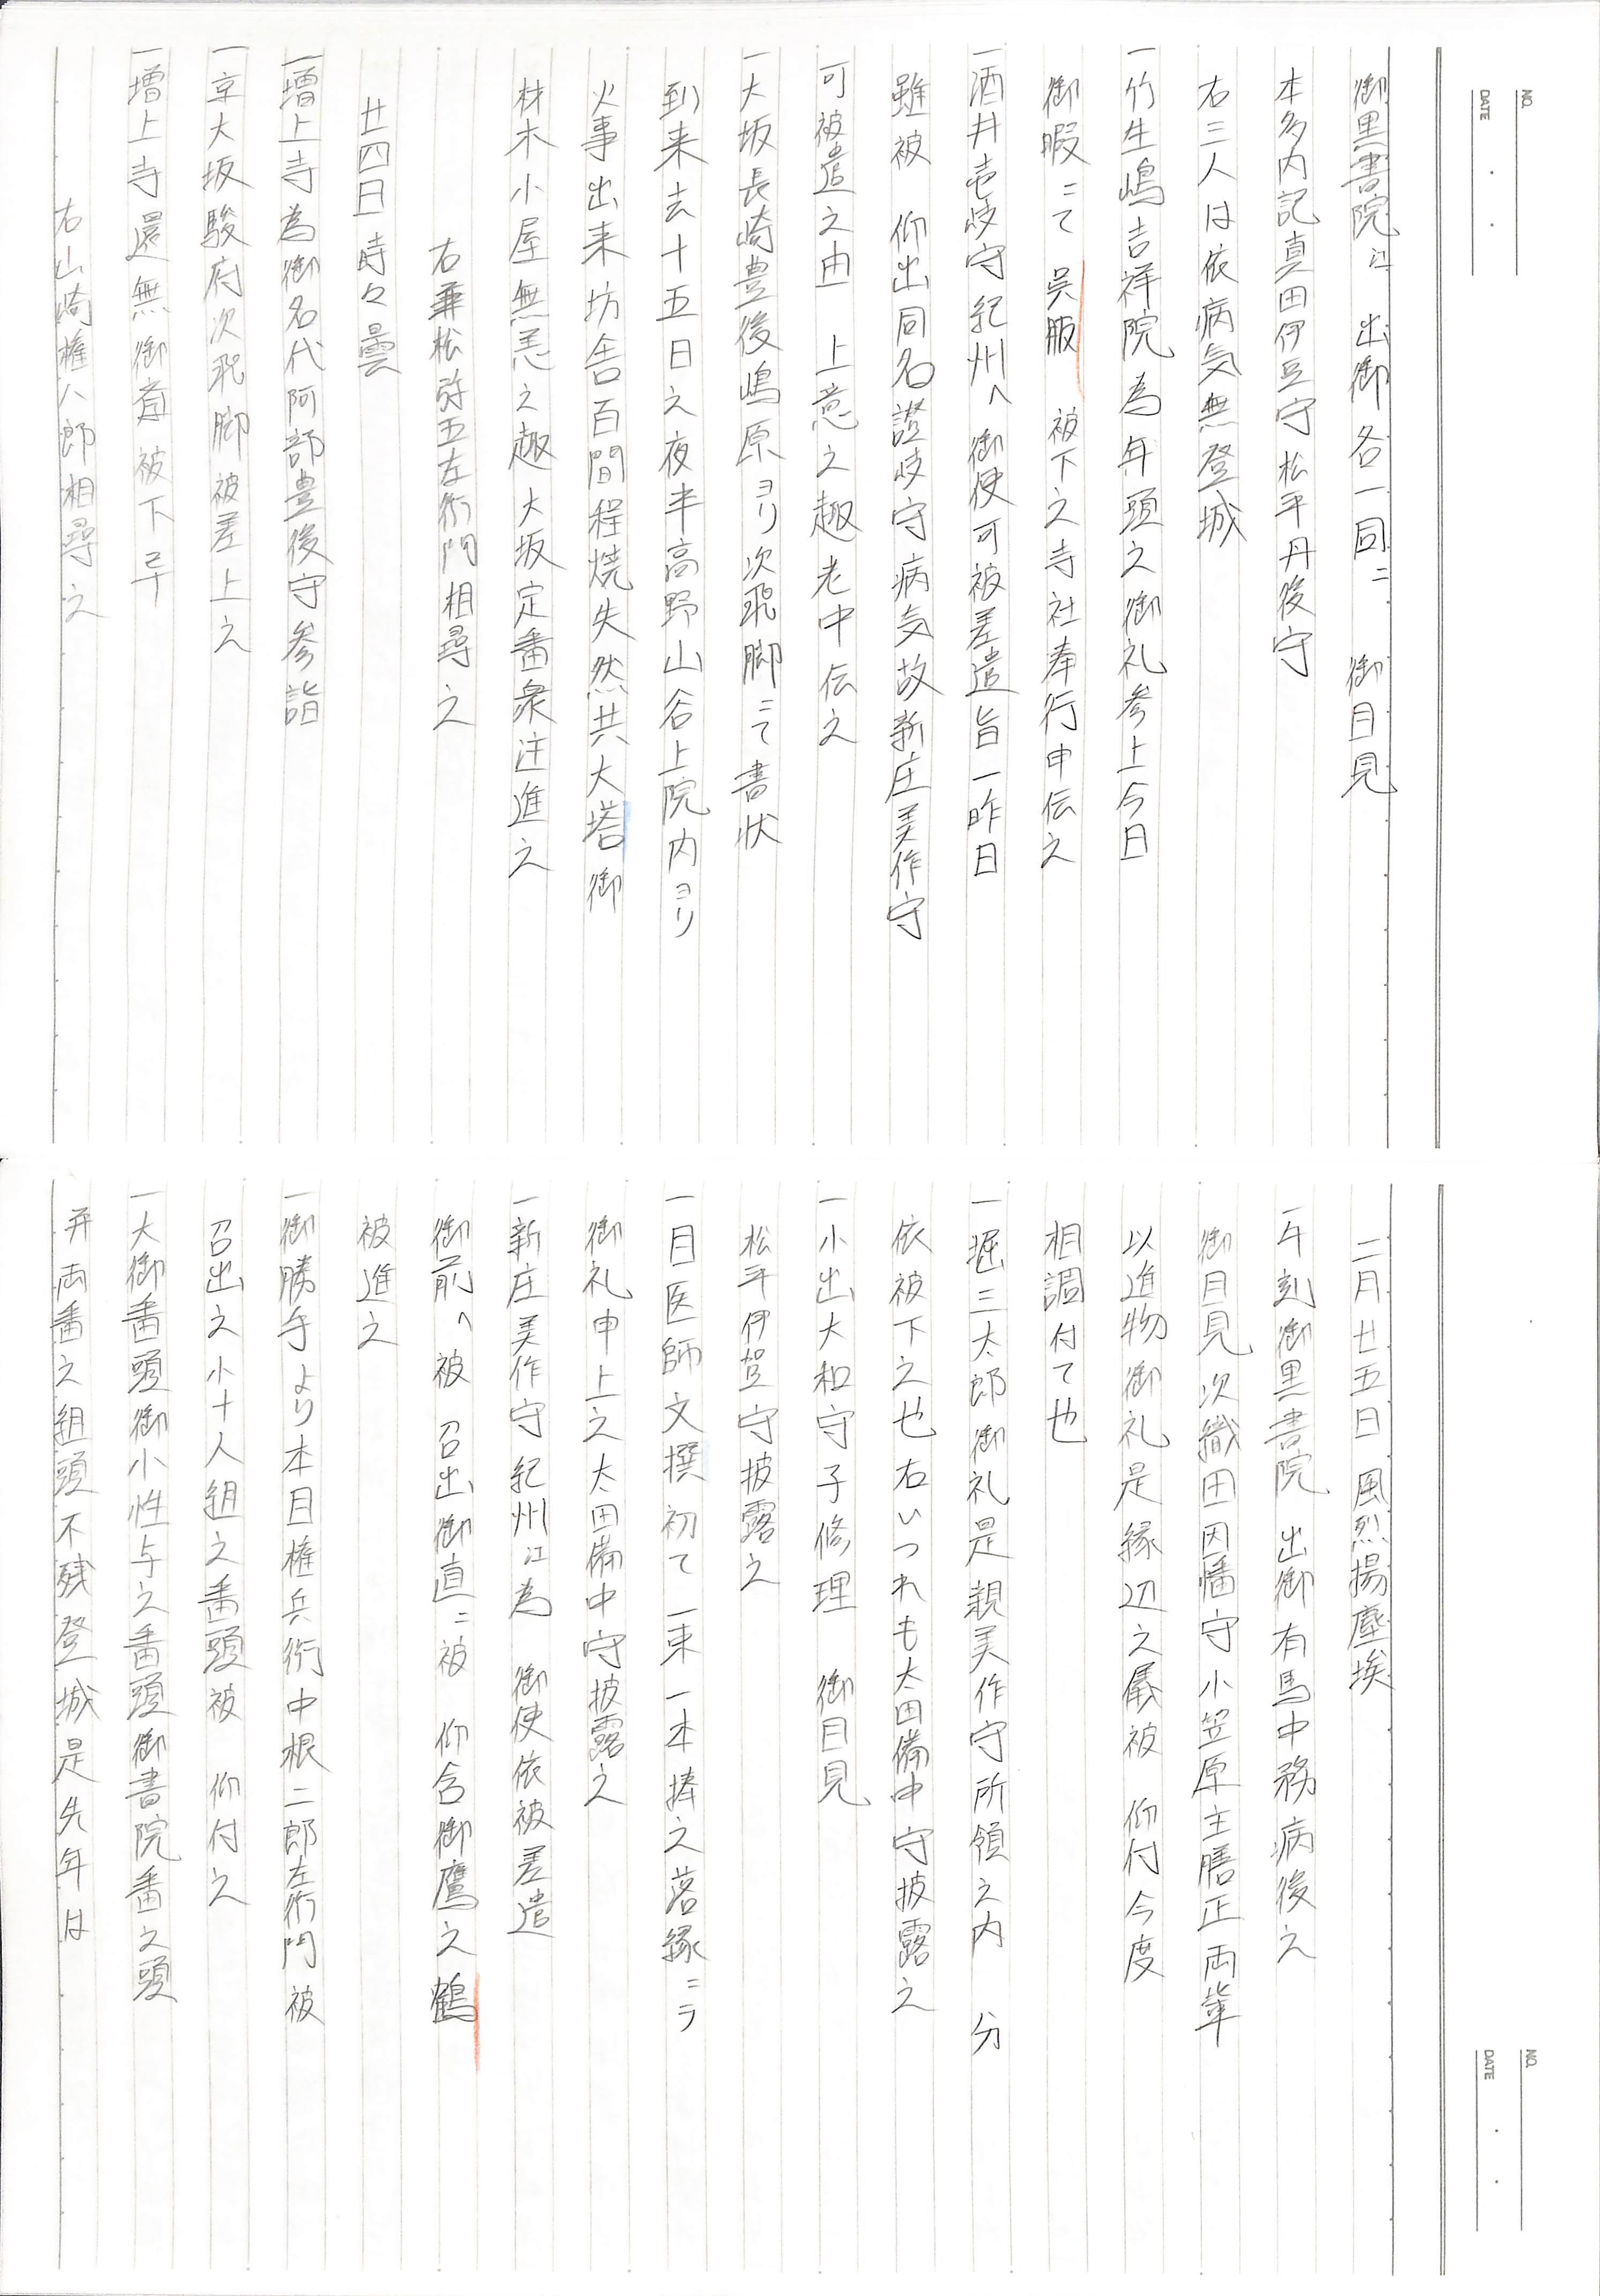 NO.
DATE
御黒書院江 出御各一同ニ 御目見
本多内記真田伊豆守松平丹後守
右三人は依病気無登城
一竹生嶋吉祥院為年頭之御礼参上今日
御暇ニて呉服 被下之寺社奉行申伝之
一酒井壱岐守紀州へ御使可被差遣旨一昨日
雖被 仰出同名讃岐守病気故新庄美作守
可被遣之由 上意之趣老中伝之
一大坂長崎豊後嶋原ヨリ次飛脚ニて書状
到来去十五日之夜半高野山谷上院内ヨリ
火事出来坊舎百間程焼失然共大塔御
材木小屋無恙之趣大坂定番衆注進之
右兼松弥五左衛門相尋之
廿四日 時々曇
一増上寺為御名代阿部豊後守参詣
一京大坂駿府次飛脚被差上之
一増上寺還無御斎被下
右山崎権八郎相尋之
NO.
DATE
二月廿五日 風烈揚塵埃
一午刻御黒書院 出御有馬中務病後之
御目見次織田因幡守小笠原主膳正両輩
以進物御礼是縁辺之儀被 仰付今度
相調付て也
一堀三太郎御礼是親美作守所領之内 分
依被下之也右いつれも太田備中守披露之
一小出大和守子修理 御目見
松平伊賀守披露之
一目医師文撰初て一束一本捧之落縁ニテ
御礼申上之太田備中守披露之
一新庄美作守紀州江為 御使依被差遣
御前へ被 召出御直ニ被 仰含御鷹之鶴
被進之
一御勝手より本目権兵衛中根二郎左衛門被
召出之小十人組之番頭被 仰付之
一大御番頭御小性与之番頭御書院番之頭
并両番之組頭不残登城是先年は